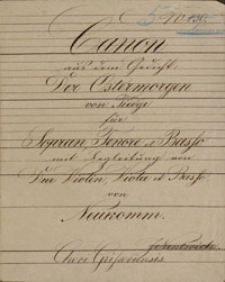 Canon
aus dem Gedicht
Der Ostermorgen
von Tiedge
für
Sopran, Tenore et Basso
mit Begleitung von
Due Violin, Viola et Basso
von
Neukomm.
Chori